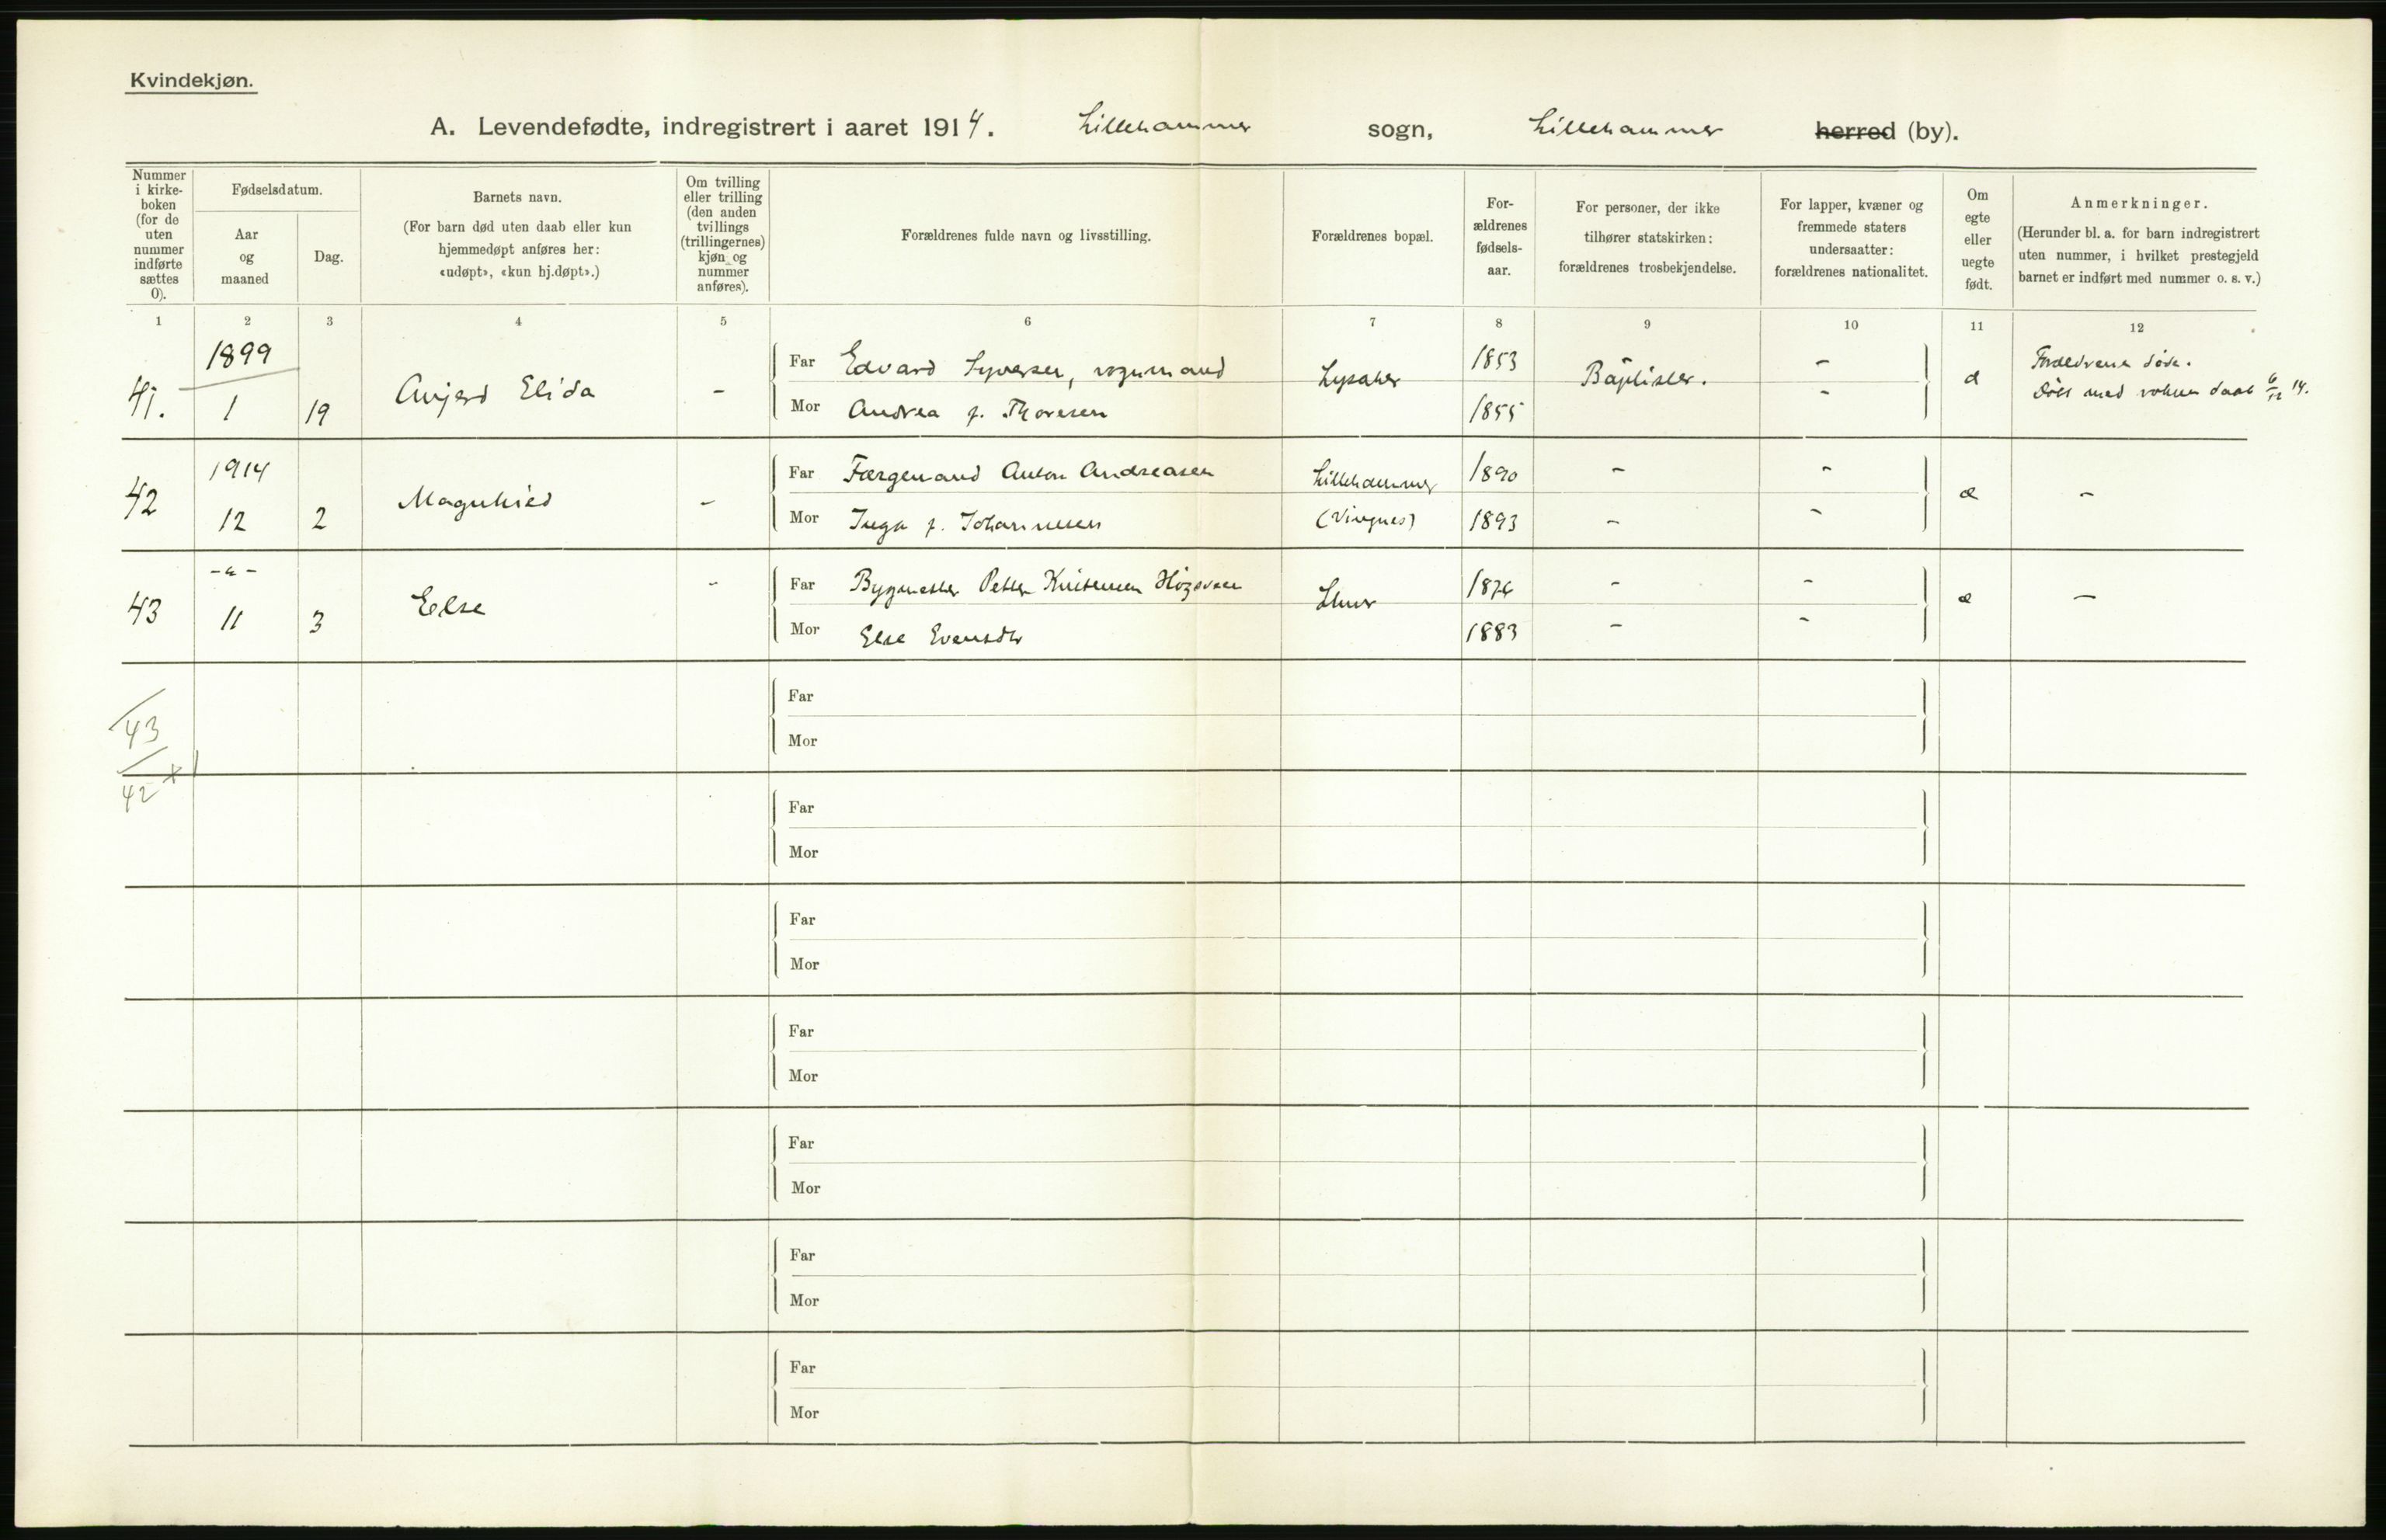 Kvindekjøn.
A. Levendefødte, indregistrert i aaret 1914. Lillehammer sogn, Lillehammer herred (by).
Nummer i kirke-boken (for de uten nummer indførte sættes 0).
Fødselsdatum.
Aar og maaned
Dag.
Barnets navn.
(For barn død uten daab eller kun hjemmedøpt anføres her: «udøpt», «kun hj.døpt».)
Om tvilling eller trilling (den anden tvillings (trillingernes) kjøn og nummer anføres).
Forældrenes fulde navn og livsstilling.
Forældrenes bopæl.
For-ældrenes fødsels-aar.
For personer, der ikke tilhører statskirken: forældrenes trosbekjendelse.
For lapper, kvæner og fremmede staters undersaatter: forældrenes nationalitet.
Om egte eller uegte født.
Anmerkninger.
(Herunder bl. a. for barn indregistrert uten nummer, i hvilket prestegjeld barnet er indført med nummer o. s. v.)
1 2 3 4 5 6 7 8 9 10 11 12
41. 1899 1 19 Elida - Far Edvard Syversen, vognmand Lysaker 1853 Baptister. - Forældrene døde.
Mor Andrea f. Thoresen 1855 - Døbt med voksen daab 6/12 14.
42 1914 12 2 Magnhild - Far Færgemand Anton Andreasen Lillehammer 1890 - - -
Mor Inga f. Johannesen (Vingnes) 1893 - -
43 -"- 11 3 Else - Far Petter Kristensen 1876 - - -
Mor Else 1883 - -
43
42 + 1
Far
Mor
Far
Mor
Far
Mor
Far
Mor
Far
Mor
Far
Mor
Far
Mor